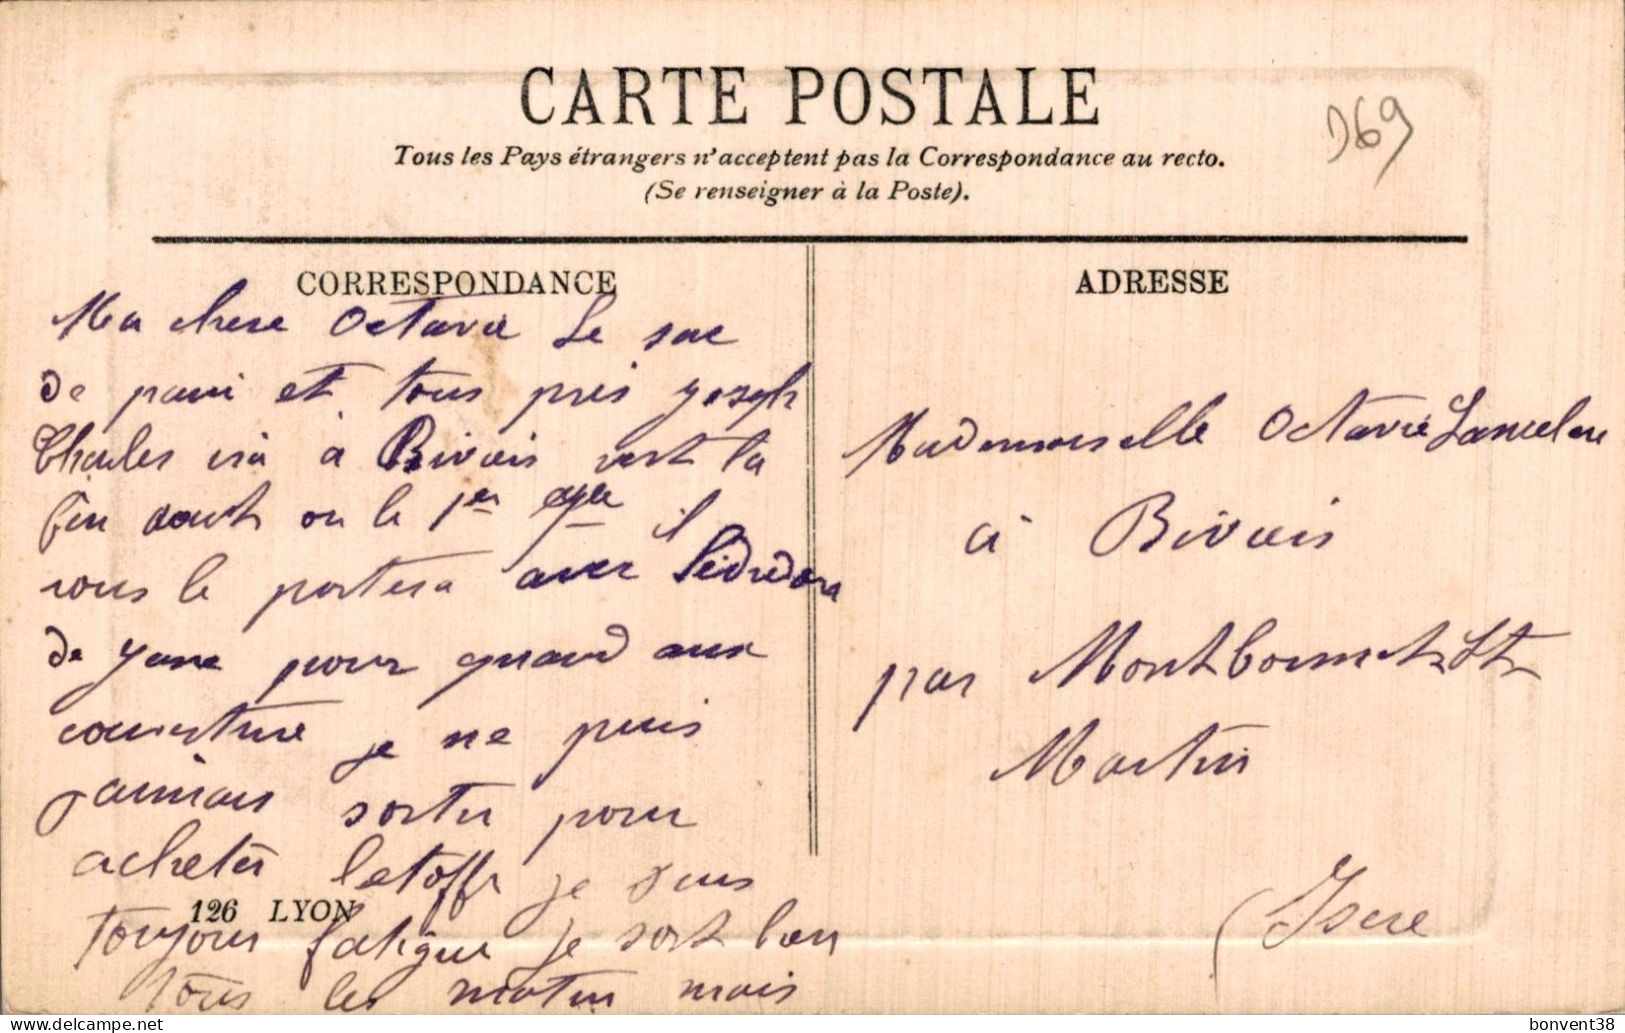 CARTE POSTALE
D69
Tous les Pays étrangers n'acceptent pas la Correspondance au recto.
(Se renseigner à la Poste).
CORRESPONDANCE
Ma chere Octavie Le sac
de pani et tous pres yoseph
Charles ira à Bivais vert la
fin aout ou le 1er il
vous le portera avec
de yane pour quand aux
couverture je ne puis
jaimais sortir pour
acheter letoffe je suis
toujours fatigue je sort bien
tous les matin mais
126 LYON
ADRESSE
Mademoiselle Octavie
à Bivais
par Montbonnot St
Martin
(Isere
bonvent38